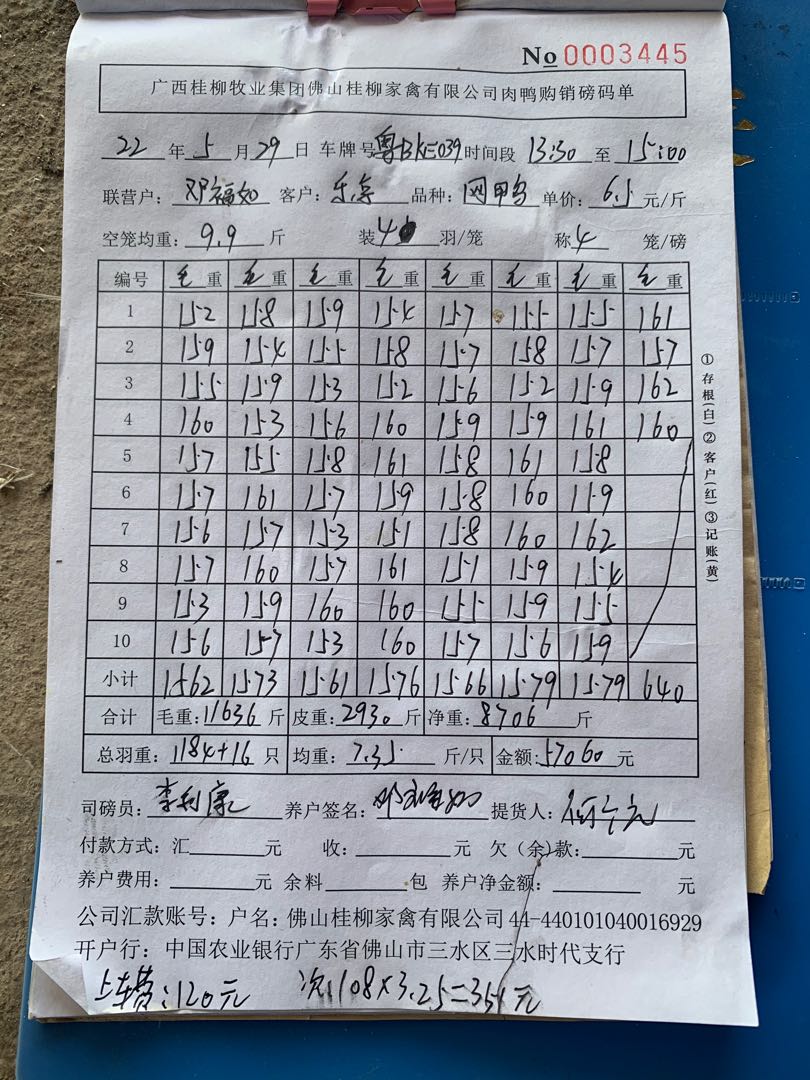 No 0003445
广西桂柳牧业集团佛山桂柳家禽有限公司肉鸭购销磅码单
22 年 5 月 29 日 车牌号 时间段 13:30 至 15:00
联营户: 邓福如 客户: 乐亭 品种: 网鸭 单价: 6.5 元/斤
空笼均重: 9.9 斤 装 4 羽/笼 称 4 笼/磅
编号 毛重 毛重 毛重 毛重 毛重 毛重 毛重 毛重
1 152 158 159 154 157 155 155 161
2 159 154 155 158 157 158 157 157
3 155 159 153 152 156 152 159 162
4 160 153 156 160 159 159 161 160
5 157 155 158 161 158 161 158
6 157 161 157 159 158 160 159
7 156 157 153 151 158 160 162
8 157 160 157 161 151 159 154
9 153 159 160 160 155 159 155
10 156 157 153 160 157 156 159
小计 1562 1573 1561 1576 1566 1579 1579 640
合计 毛重: 11636 斤 皮重: 2930 斤 净重: 8706 斤
总羽重: 1184+16 只 均重: 7.35 斤/只 金额: 57060 元
司磅员: 李利康 养户签名: 提货人:
付款方式: 汇 元 收: 元 欠(余)款: 元
养户费用: 元 余料 包 养户净金额: 元
公司汇款账号: 户名: 佛山桂柳家禽有限公司 44-440101040016929
开户行: 中国农业银行广东省佛山市三水区三水时代支行
上车费:120元 次:108×3.25=351元
①存根(白)②客户(红)③记账(黄)